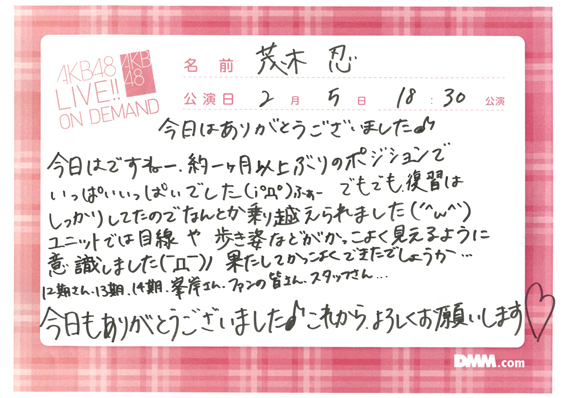 AKB48
LIVE!!
ON DEMAND
AKB
48
名前 茂木 忍
公演日 2月 5日 18:30 公演
今日はありがとうございました♪
今日はですねー、約一ヶ月以上ぶりのポジションで
いっぱいいっぱいでした(;°Д°)ふぁー でもでも、復習は
しっかりしてたのでなんとか乗り越えられました(^ω^)
ユニットでは目線や歩き姿などがかっこよく見えるように
意識しました(￣Д￣)ﾉ 果たしてかっこよくできたでしょうか…
12期さん、13期、14期、峯岸さん、ファンの皆さん、スタッフさん…
今日もありがとうございました♪これから、よろしくお願いします♡
DMM.com